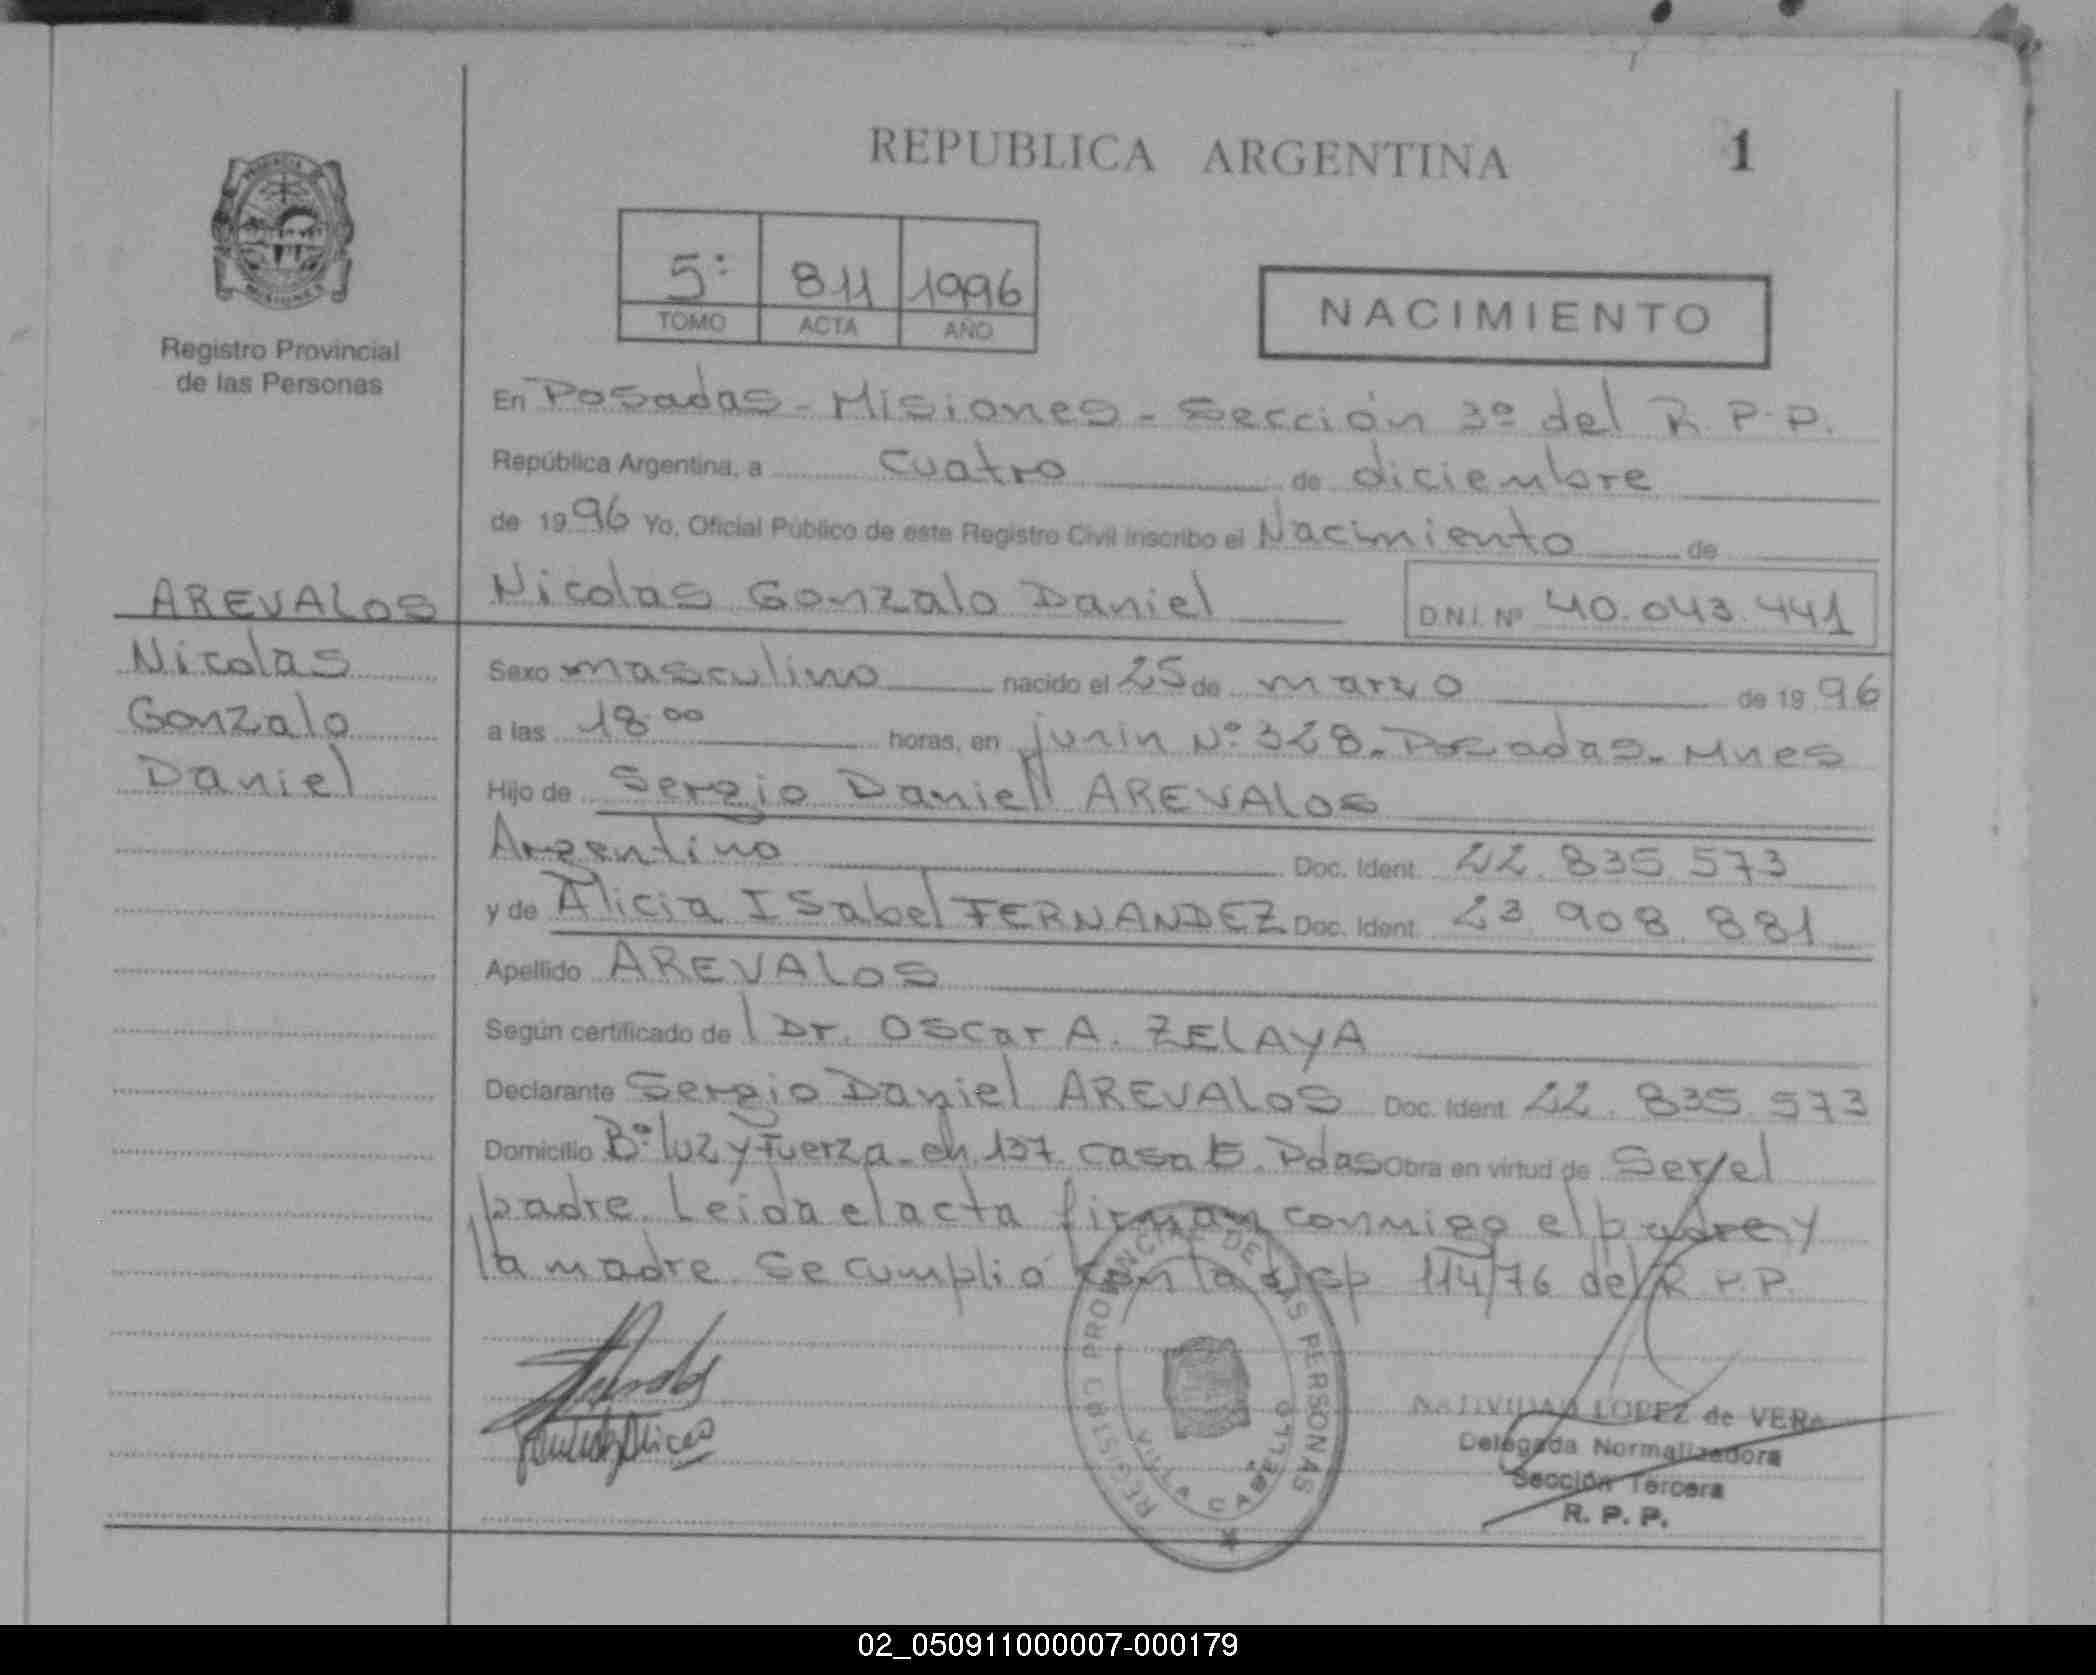 REPUBLICA ARGENTINA
1
Registro Provincial
de las Personas
5º
811
1996
TOMO
ACTA
AÑO
NACIMIENTO
En Posadas - Misiones - Sección 3º del R.P.P.
República Argentina, a cuatro de diciembre
de 1996 Yo, Oficial Público de este Registro Civil inscribo el Nacimiento de
Nicolas Gonzalo Daniel D.N.I. Nº 40.043.441
AREVALOS
Nicolas
Gonzalo
Daniel
Sexo masculino nacido el 25 de marzo de 1996
a las 18.00 horas, en junin Nº 328. Posadas. Mnes
Hijo de Sergio Daniel AREVALOS
Argentino Doc. Ident. 22.835.573
y de Alicia Isabel FERNANDEZ Doc. Ident. 23.908.881
Apellido AREVALOS
Según certificado de l Dr. Oscar A. ZELAYA
Declarante Sergio Daniel AREVALOS Doc. Ident. 22.835.573
Domicilio Bº luz y Fuerza - ch 137 casa 5. Pdas Obra en virtud de Ser el
padre. Leida el acta firman conmigo el padre y
la madre. Se cumplió con la disp 114/76 del R.P.P.
REGISTRO PROVINCIAL DE LAS PERSONAS
VILLA CABELLO
NATIVIDAD LOPEZ de VERA
Delegada Normalizadora
Sección Tercera
R. P. P.
02_050911000007-000179